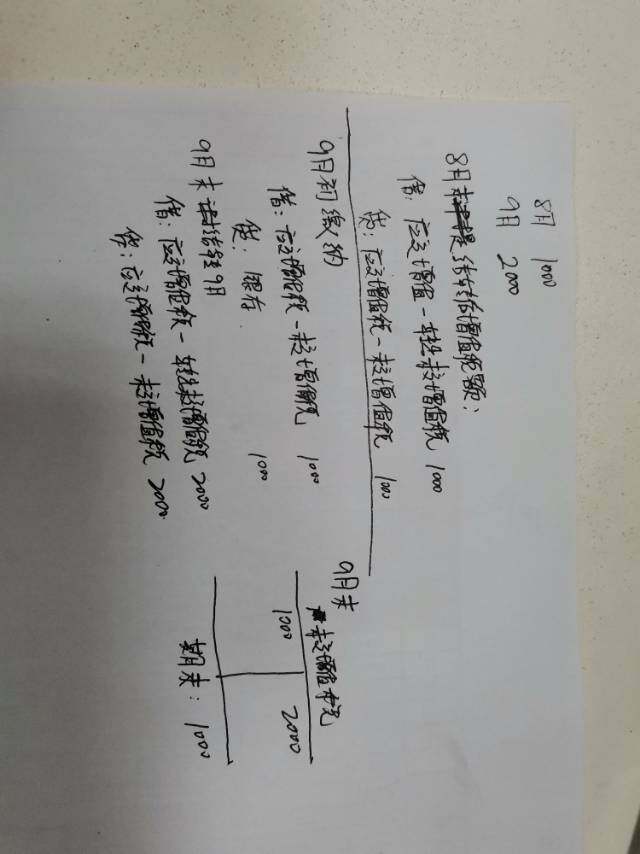 8月 1000
9月 2000
8月末结转增值税额:
借: 应交增值-转出未交增值税 1000
贷: 应交增值税-未交增值税 1000
9月初缴纳
借: 应交增值税-未交增值税 1000
贷: 银行 1000
9月末 结转9月
借: 应交增值税-转出未交增值税 2000
贷: 应交增值税-未交增值税 2000
9月末
未交增值税
1000 2000
期末: 1000